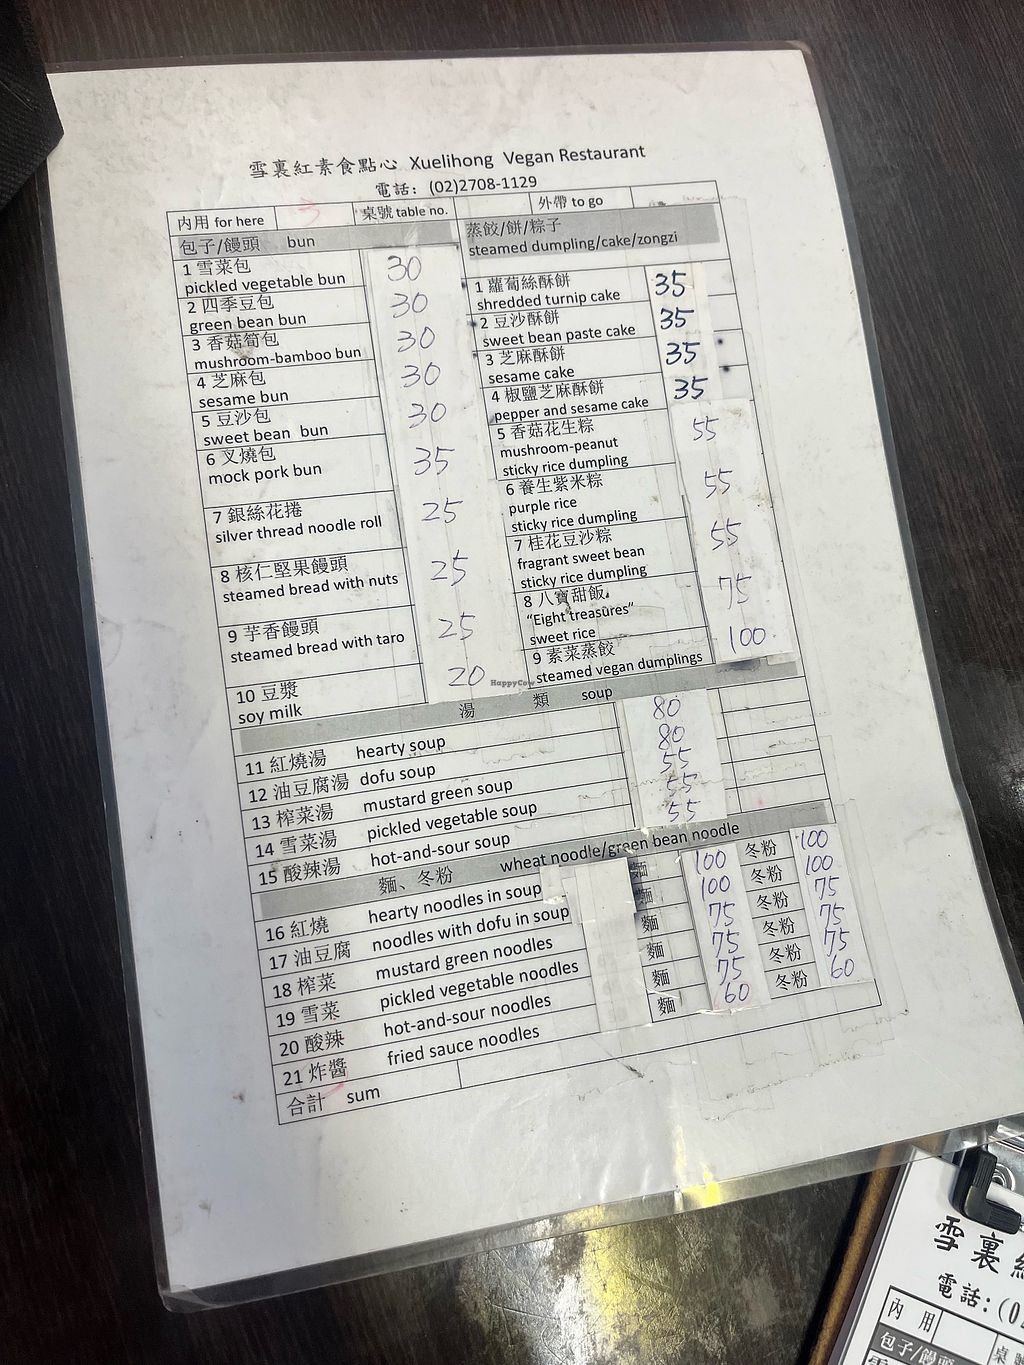 雪裏紅素食點心 Xuelihong Vegan Restaurant
電話: (02)2708-1129
內用 for here 桌號 table no. 外帶 to go
包子/饅頭 bun
1 雪菜包 30
pickled vegetable bun
2 四季豆包 30
green bean bun
3 香菇筍包 30
mushroom-bamboo bun
4 芝麻包 30
sesame bun
5 豆沙包 30
sweet bean bun
6 叉燒包 35
mock pork bun
7 銀絲花捲 25
silver thread noodle roll
8 核仁堅果饅頭 25
steamed bread with nuts
9 芋香饅頭 25
steamed bread with taro
10 豆漿 20
soy milk
蒸餃/餅/粽子
steamed dumpling/cake/zongzi
1 蘿蔔絲酥餅 35
shredded turnip cake
2 豆沙酥餅 35
sweet bean paste cake
3 芝麻酥餅 35
sesame cake
4 椒鹽芝麻酥餅 35
pepper and sesame cake
5 香菇花生粽 55
mushroom-peanut
sticky rice dumpling
6 養生紫米粽 55
purple rice
sticky rice dumpling
7 桂花豆沙粽 55
fragrant sweet bean
sticky rice dumpling
8 八寶甜飯 75
“Eight treasures”
sweet rice
9 素菜蒸餃 100
steamed vegan dumplings
HappyCow
湯 類 soup
11 紅燒湯 hearty soup 80
12 油豆腐湯 dofu soup 80
13 榨菜湯 mustard green soup 55
14 雪菜湯 pickled vegetable soup 55
15 酸辣湯 hot-and-sour soup 55
麵、冬粉 wheat noodle/green bean noodle
16 紅燒 hearty noodles in soup 麵 100 冬粉 100
17 油豆腐 noodles with dofu in soup 麵 100 冬粉 100
18 榨菜 mustard green noodles 麵 75 冬粉 75
19 雪菜 pickled vegetable noodles 麵 75 冬粉 75
20 酸辣 hot-and-sour noodles 麵 75 冬粉 75
21 炸醬 fried sauce noodles 麵 60 冬粉 60
合計 sum
雪裏
電話:(0
內 用
包子/饅頭